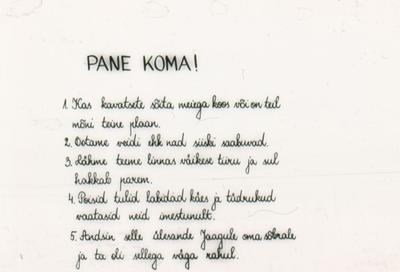 PANE KOMA!
1. Kas kavatsete sõita meiega koos või on teil
mõni teine plaan.
2. Ootame veidi ehk nad siiski saabuvad.
3. Lähme teeme linnas väikese tiiru ja sul
hakkab parem.
4. Poisid tulid labidad käes ja tüdrukud
vaatasid neid imestunult.
5. Andsin selle ülesande Jaagule oma sõbrale
ja ta oli sellega väga rahul.